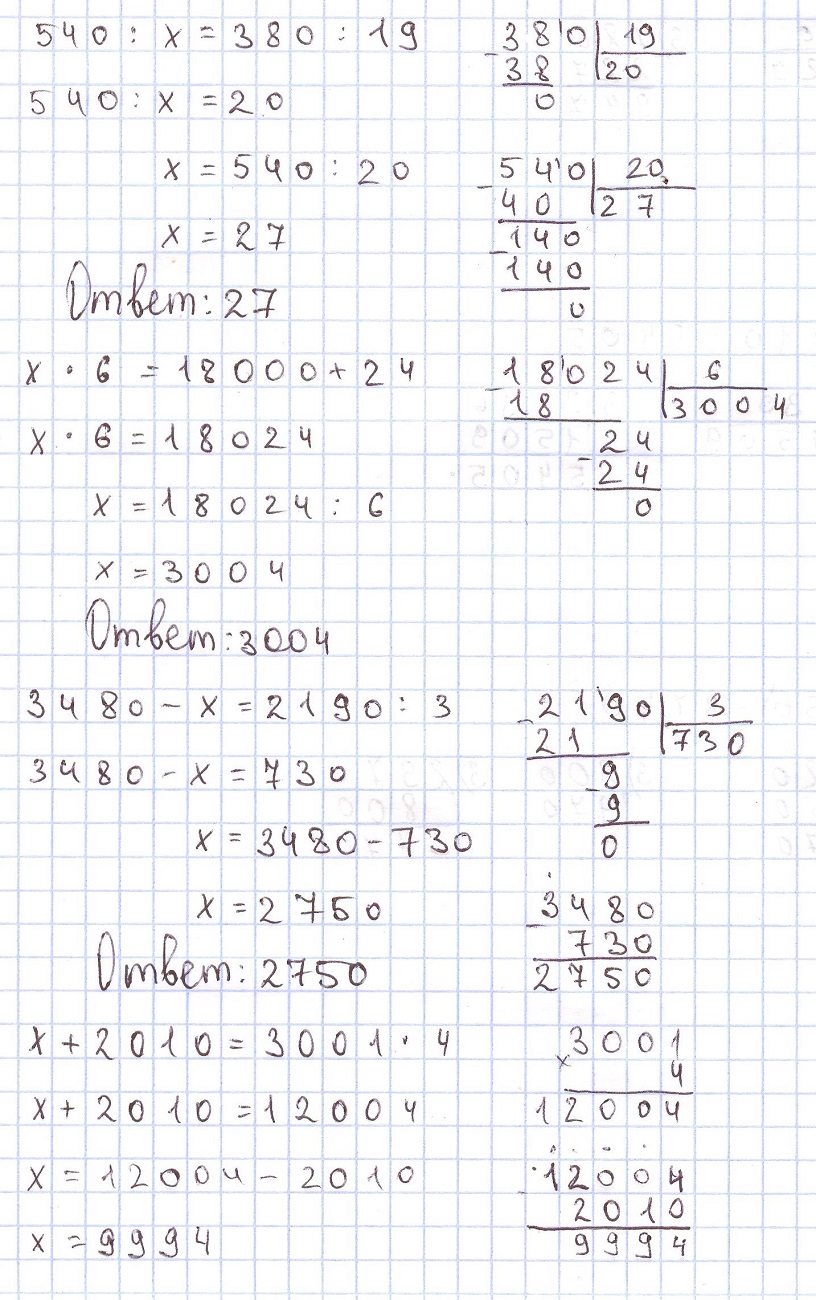 540 : x = 380 : 19
540 : x = 20
x = 540 : 20
x = 27
Ответ: 27
380 19
38 20
0
540 20
40 27
140
140
0
x · 6 = 18000 + 24
x · 6 = 18024
x = 18024 : 6
x = 3004
Ответ: 3004
18024 6
18 3004
24
24
0
3480 - x = 2190 : 3
3480 - x = 730
x = 3480 - 730
x = 2750
Ответ: 2750
2190 3
21 730
9
9
0
3480
730
2750
x + 2010 = 3001 · 4
x + 2010 = 12004
x = 12004 - 2010
x = 9994
3001
× 4
12004
12004
2010
9994